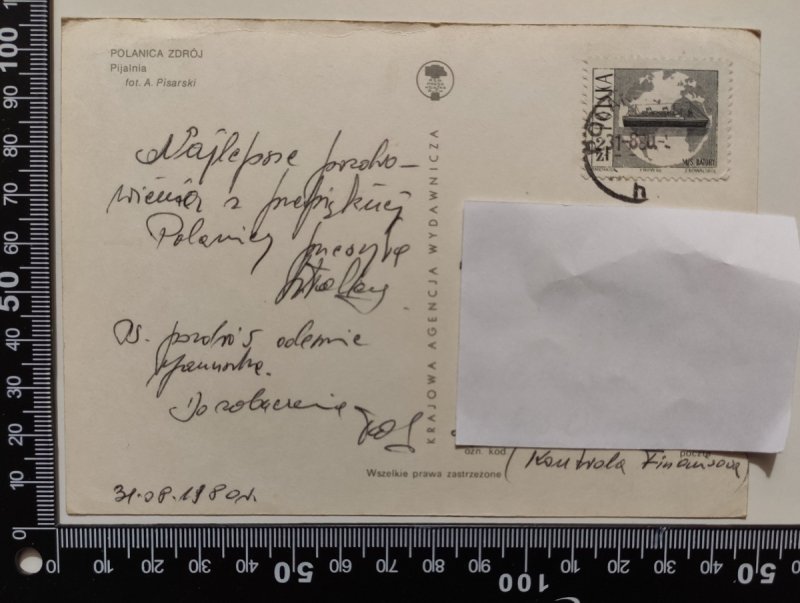 POLANICA ZDRÓJ
Pijalnia
fot. A. Pisarski
POLSKA
31-8.80.-
zł
M/S. BATORY
Najlepsze pozdro-
wienia z przepięknej
Polanicy przesyła
Ps. pozdrów odemnie
Do zobaczenia
31.08.1980r.
KRAJOWA AGENCJA WYDAWNICZA
ozn. kod
poczta
(Kontrola Finansowa)
Wszelkie prawa zastrzeżone
0 10 20 30 40 50 60 70 80 90 100
0 10 20 30 40 50 60 70 80 90 100 10 20 30 40 50